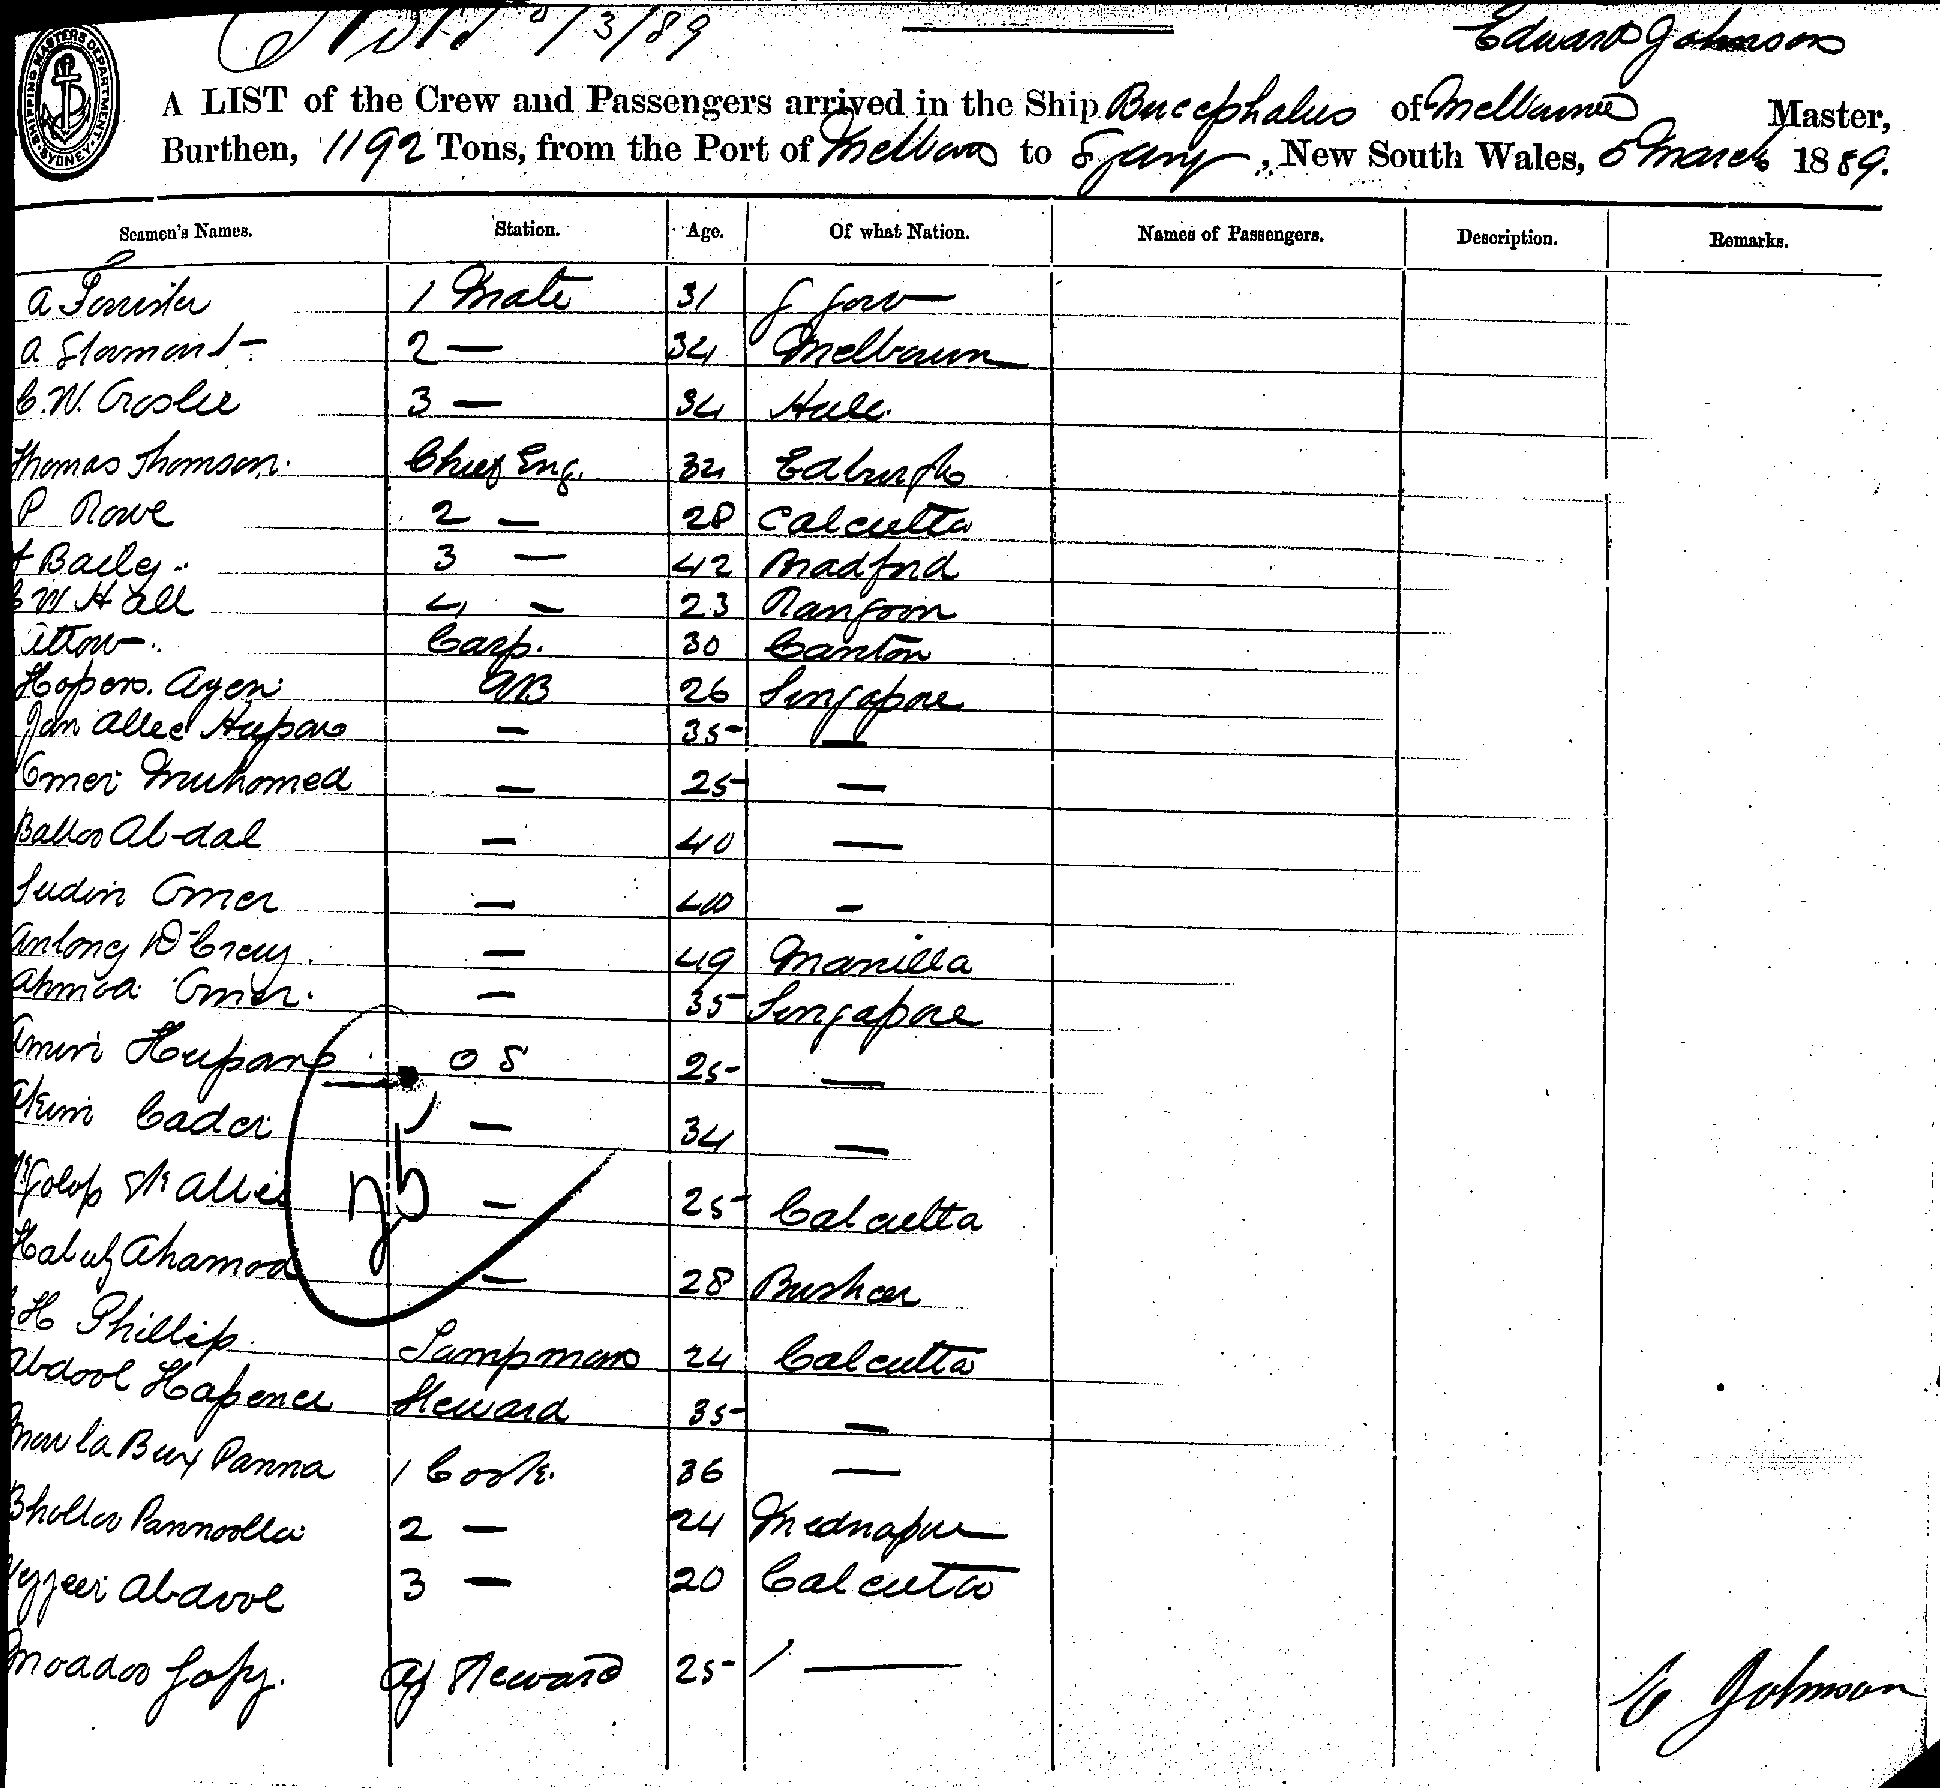 /3/89
Edward Johnson
SHIPPING MASTERS DEPARTMENT SYDNEY
A LIST of the Crew and Passengers arrived in the Ship Bucephalus of Melbourne Master,
Burthen, 1192 Tons, from the Port of Melbourne to Sydney, New South Wales, 5 March 1889.
Seamen's Names. Station. Age. Of what Nation. Names of Passengers. Description. Remarks.
A Forrister 1 Mate 31
A Stormont 2 — 34 Melbourn
C. W. Croslie 3 — 34 Hull.
Thomas Thomson. Chief Eng. 32 Edburgh
P Rowe 2 — 28 Calcutta
Bailey 3 — 42 Bradford
W Hall 4 — 23 Rangoon
Carp. 30 Canton
Ayen AB 26 Singapore
Jan Allee Hupan — 35 —
Omer Muhomed — 25 —
Balloo Abdal — 40 —
Sudin Omer — 40 —
Antony D'Cruz — 49 Manilla
Ahmed Omer. — 35 Singapore
Amin Hupan O S 25 —
Akim Cader — 34 —
Golop Sk Allie — 25 Calcutta
25
Ahamod — 28 Busheer
H Phillip Lampman 24 Calcutta
Abdool Hapenee Steward 35 —
Mowla Bux Panna 1 Cook. 36 —
Bholloo Pannoolla 2 — 24 Mednapur
Abdool 3 — 20 Calcutta
Moadoo Gopy. Steward 25 —
E Johnson